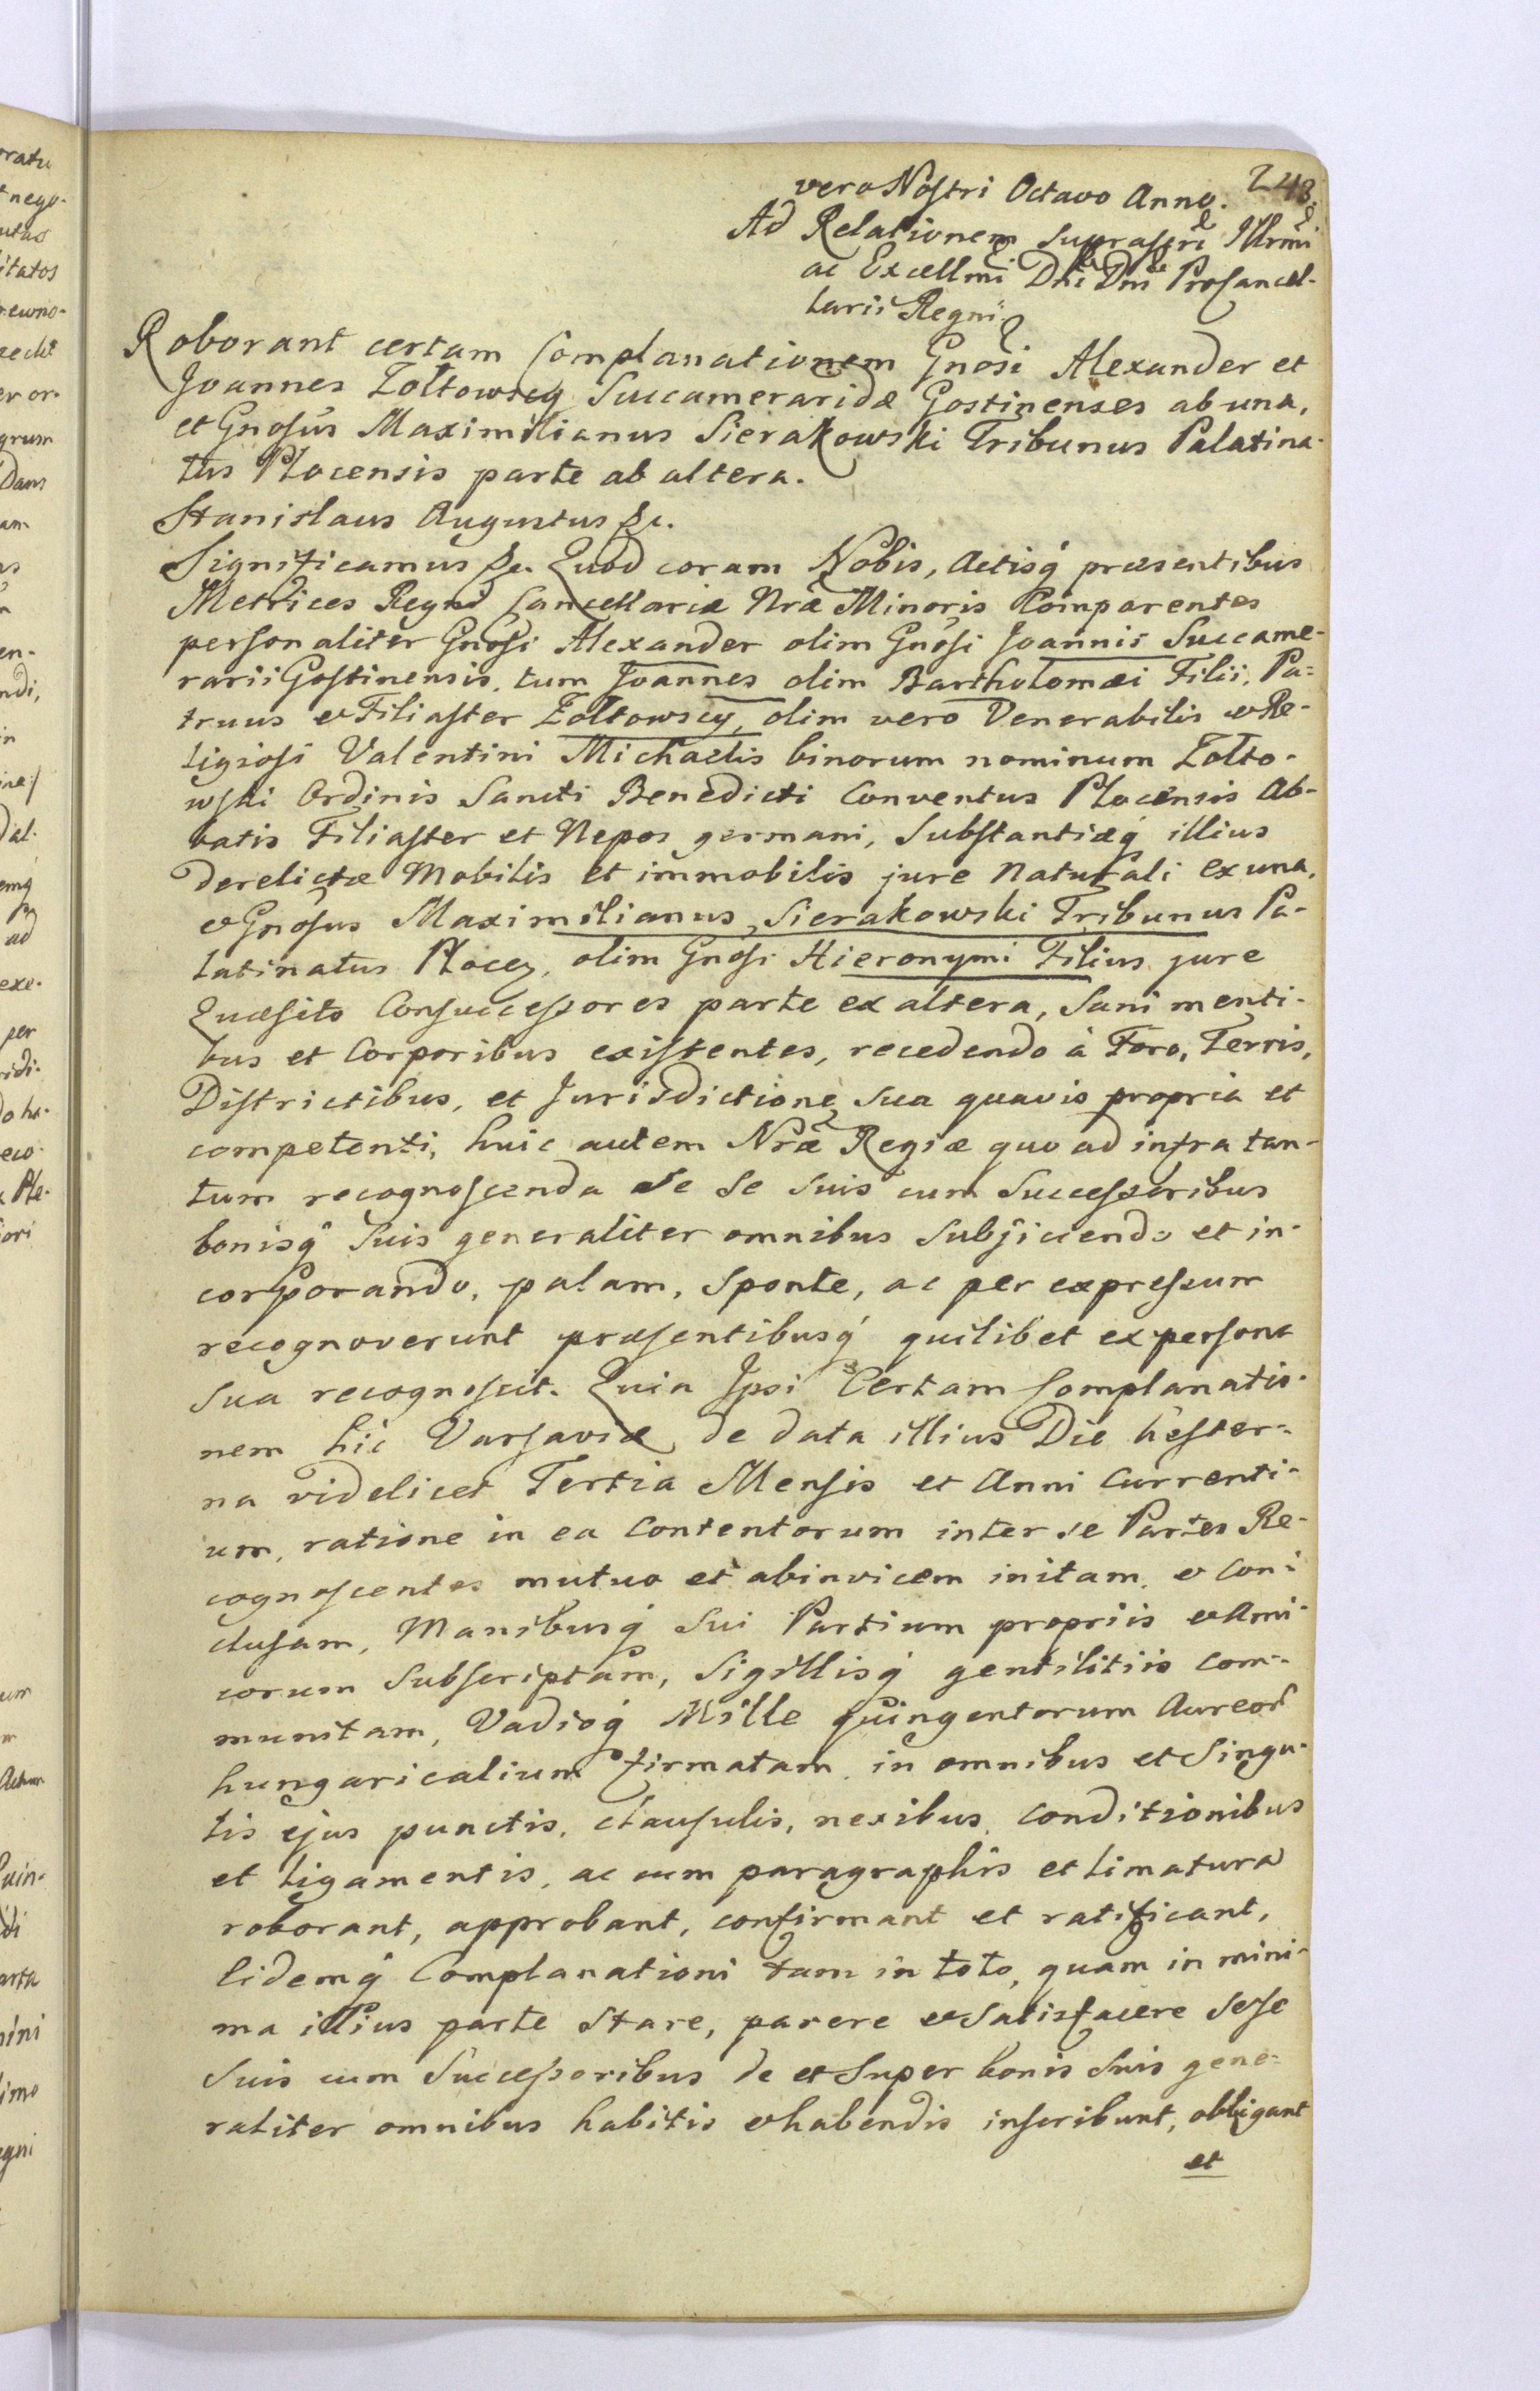 248.
vero Nostri Octavo Anno.
Ad Relationem suprascri Illrmi
ac Excellmi Dni Dni ProCancel-
larii Regni
Roborant certam Complanationem Gnosi Alexander et
Joannes Zołtowscy Succameraridæ Gostinenses ab una,
et Gnosus Maximilianus Sierakowski Tribunus Palatina-
tus Plocensis parte ab altera.
Stanislaus Augustus &c.
Significamus &c. Quod coram Nobis, Actisq́ præsentibus
Metrices Regni Cancellariæ Nræ Minoris Comparentes
personaliter Gnosi Alexander olim Gnosi Joannis Succame-
rarii Gostinensis, tum Joannes olim Bartholomæi Filii, Pa=
truus & Filiaster Zołtowscy, olim vero Venerabilis & Re-
ligiosi Valentini Michaelis binorum nominum Zołto-
wski Ordinis Sancti Benedicti Conventus Plocensis Ab-
batis Filiaster et Nepos germani, Substantiæq́ illius
derelictæ Mobilis et immobilis jure Naturali ex una,
& Gnosus Maximilianus Sierakowski Tribunus Pa-
latinatus Płocen, olim Gnosi Hieronymi Filius jure
Quæsito Consuccessores parte ex altera, Sani menti-
bus et Corporibus existentes, recedendo à Foro, Terris,
Districtibus, et Jurisdictione sua quavis propria et
competenti, huic autem Nræ Regiæ quo ad infra tan-
tum recognoscenda se se suis cum Successoribus
bonisq́ suis generaliter omnibus Subjiciendo et in-
corporando, palam, sponte, ac per expressum
recognoverunt præsentibusq́ quilibet ex persona
sua recognoscit. Quia Ipsi Certam Complanatio-
nem hic Varsaviæ de data illius Die hester-
na videlicet Tertia Mensis et Anni Currenti-
um, ratione in ea Contentorum inter se Partes Re-
cognoscentes mutuo et abinvicem initam, & Con-
clusam, Manibusq́ Sui Partium propriis & Ami-
corum Subscriptam, Sigillisq́ gentilitiis com-
munitam, Vadioq́ Mille quingentorum Aureor
hungaricalium firmatam, in omnibus et Singu-
lis ejus punctis, clausulis, nexibus, Conditionibus
et ligamentis, ac cum paragraphis et limatura
roborant, approbant, confirmant et ratificant,
Eidemq́ Complanationi tam in toto, quam in mini-
ma illius parte stare, parere & Satisfacere sese
suis cum Successoribus de et Super bonis Suis gene=
raliter omnibus habitis & habendis inscribunt, obligant
et